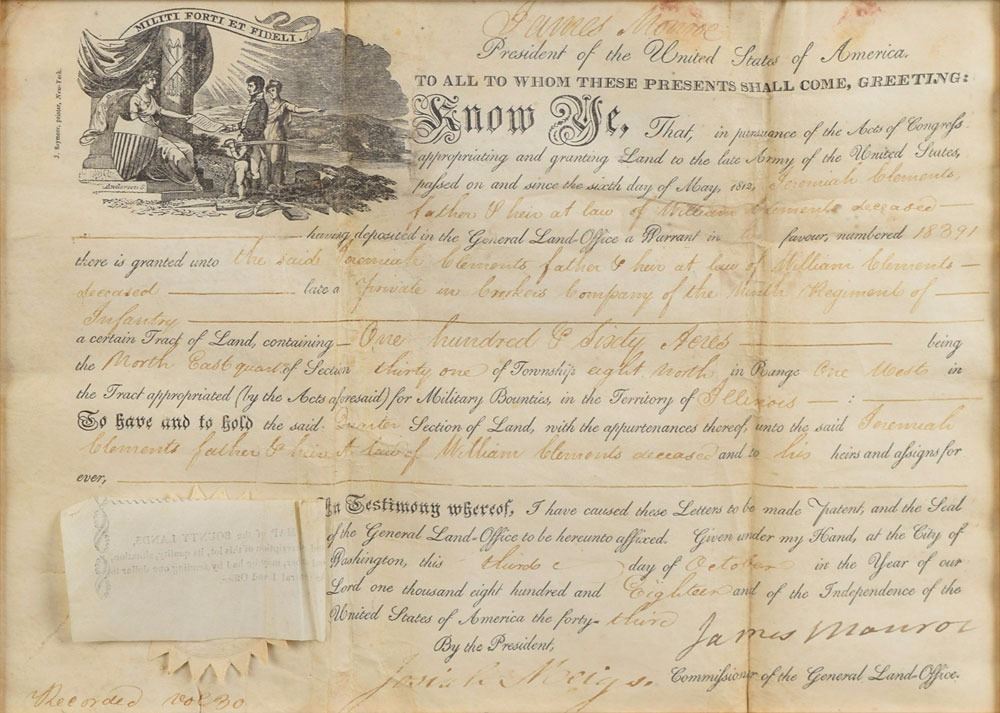 MILITI FORTI ET FIDELI.
J. Seymour, printer, New-York.
Anderson S.
James Monroe
President of the United States of America,
TO ALL TO WHOM THESE PRESENTS SHALL COME, GREETING:
Know Ye, That, in pursuance of the Acts of Congress
appropriating and granting Land to the late Army of the United States,
passed on and since the sixth day of May, 1812, Jeremiah Clements,
father & heir at law of William Clements deceased
having deposited in the General Land-Office a Warrant in his favour, numbered 18391
there is granted unto the said Jeremiah Clements father & heir at law of William Clements
deceased late a Private in Crokers Company of the Ninth Regiment of
Infantry
a certain Tract of Land, containing One hundred & Sixty Acres being
the North East quar of Section thirty one of Township eight North in Range One West in
the Tract appropriated (by the Acts aforesaid) for Military Bounties, in the Territory of Illinois :
To have and to hold the said Quarter Section of Land, with the appurtenances thereof, unto the said Jeremiah
Clements father & heir at law of William Clements deceased and to his heirs and assigns for
ever,
In Testimony whereof, I have caused these Letters to be made Patent, and the Seal
of the General Land-Office to be hereunto affixed. Given under my Hand, at the City of
Washington, this third day of October in the Year of our
Lord one thousand eight hundred and Eighteen and of the Independence of the
United States of America the forty-third
By the President, James Monroe
Josiah Meigs. Commissioner of the General Land-Office.
MAP of the BOUNTY LANDS,
Recorded vol 30